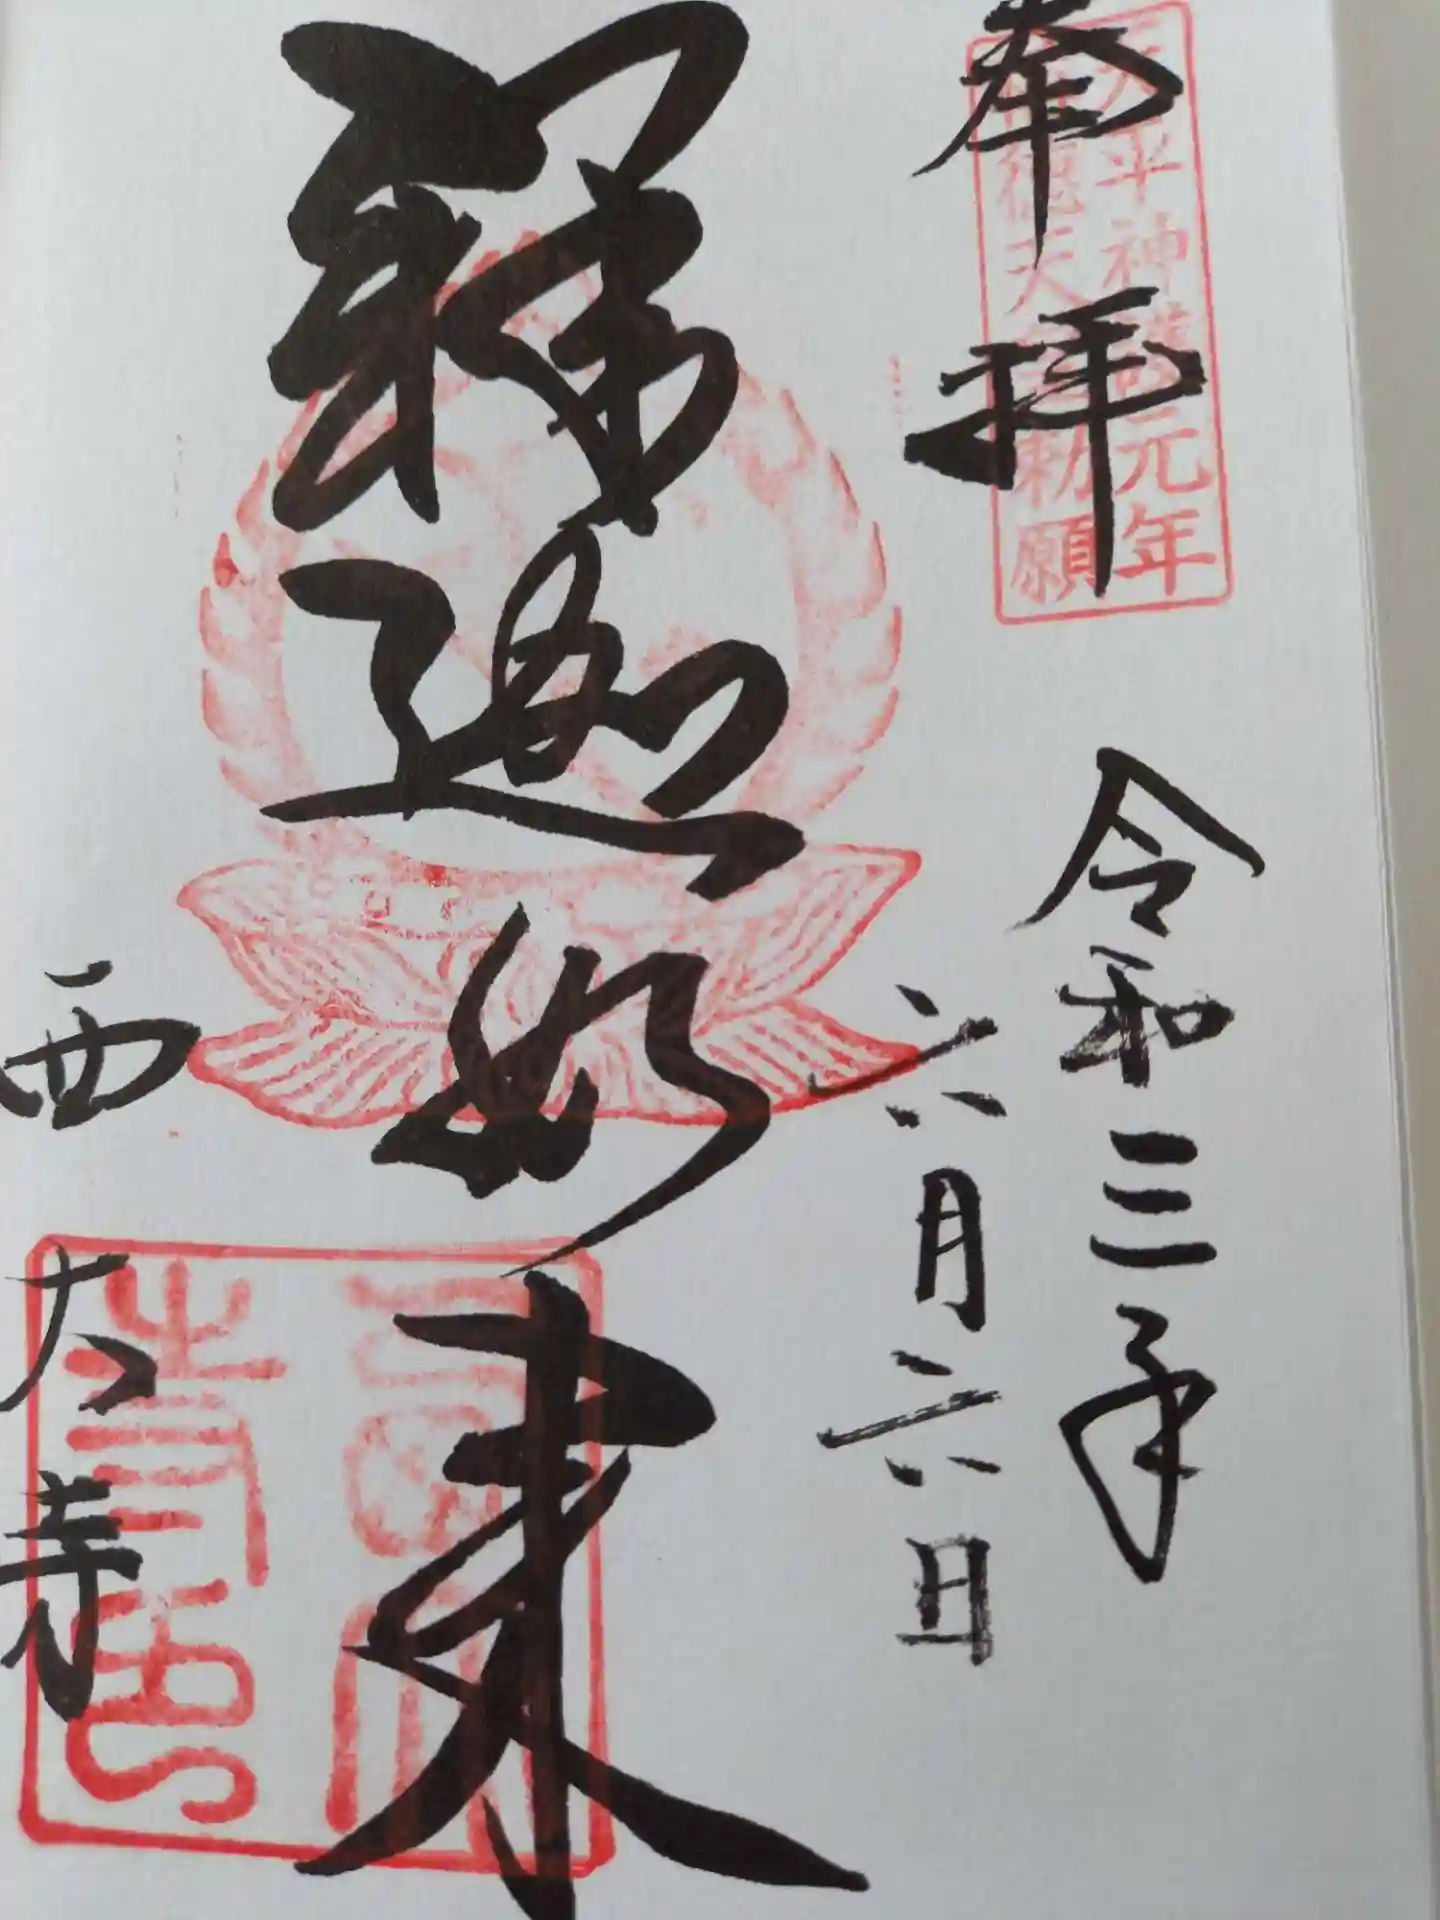 奉拝
天平神護元年
称徳天皇勅願
令和三年
六月六日
釋迦如来
西大寺
西大寺印